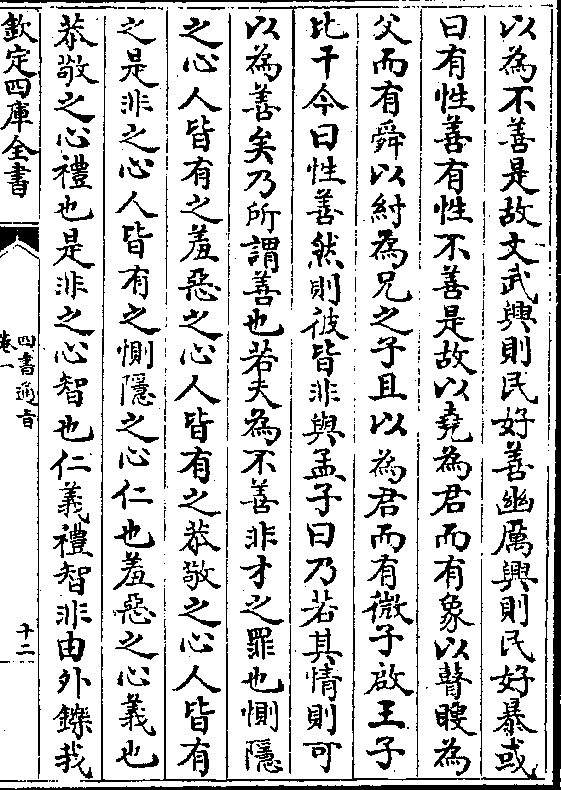 以為不善是故文武興則民好善幽厲興則民好暴或
曰有性善有性不善是故以堯為君而有象以瞽瞍為
父而有舜以紂為兄之子且以為君而有微子啟王子
比干今曰性善然則彼皆非與孟子曰乃若其情則可
以為善矣乃所謂善也若夫為不善非才之罪也惻隱
之心人皆有之羞惡之心人皆有之恭敬之心人皆有
之是非之心人皆有之惻隱之心仁也羞惡之心義也
恭敬之心禮也是非之心智也仁義禮智非由外鑠我
欽定四庫全書
四書通旨
卷一
十二